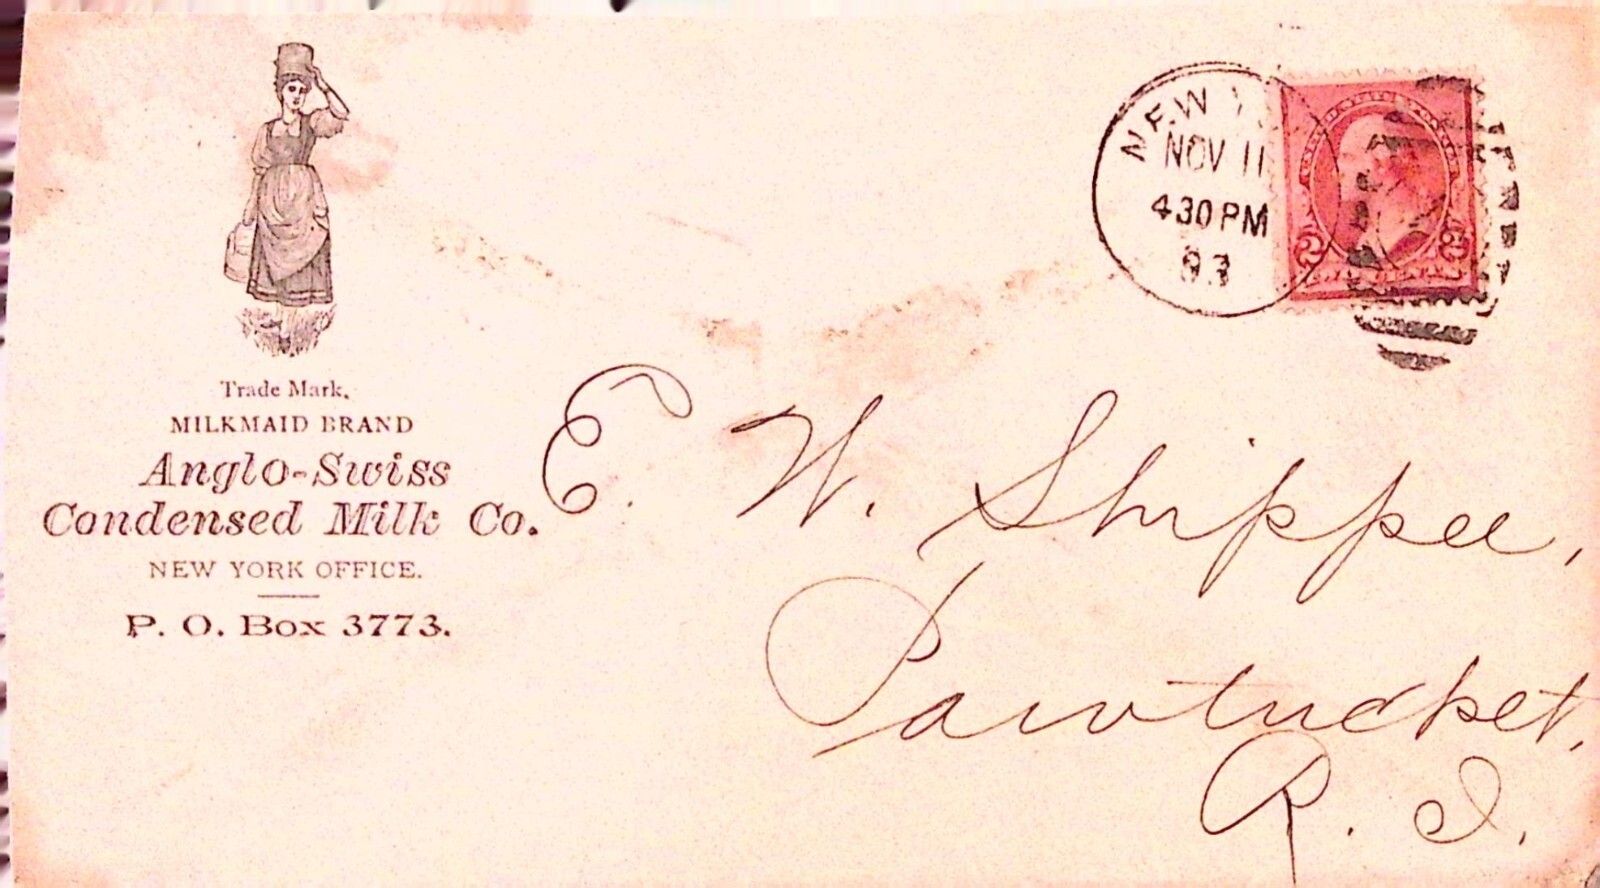 Trade Mark.
MILKMAID BRAND
Anglo-Swiss
Condensed Milk Co.
NEW YORK OFFICE.
P. O. Box 3773.
NEW Y
NOV 11
430 PM
93
2 2
E. W. Shippee,
Pawtucket,
R. I.